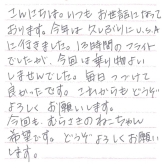 こんにちは。いつもお世話になって
おります。今年は久しぶりにUSA
に行きました。13時間のフライト
でしたが、今回は乗り物よい
しませんでした。毎日つづけて
良かったです。これからもどうぞ
よろしくお願いします。
今回も、むらさきのねこちゃん
希望です。どうぞよろしくお願い
します。